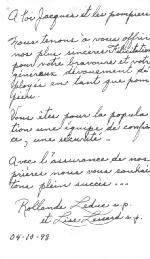 A Toi Jacques et les pompiers
Nous tenons à vous offrir
nos plus sincères Félicitations
pour votre bravoure et votre
généreux dévouement dé-
ployés en tant que pom-
piers.
Vous êtes pour la popula-
tion une équipe de confian-
ce, une sécurité -
Avec l'assurance de nos
prières nous vous souhai-
tons plein succès ...
Rollande Leduc s.p.
et Lise s.p.
04-10-98